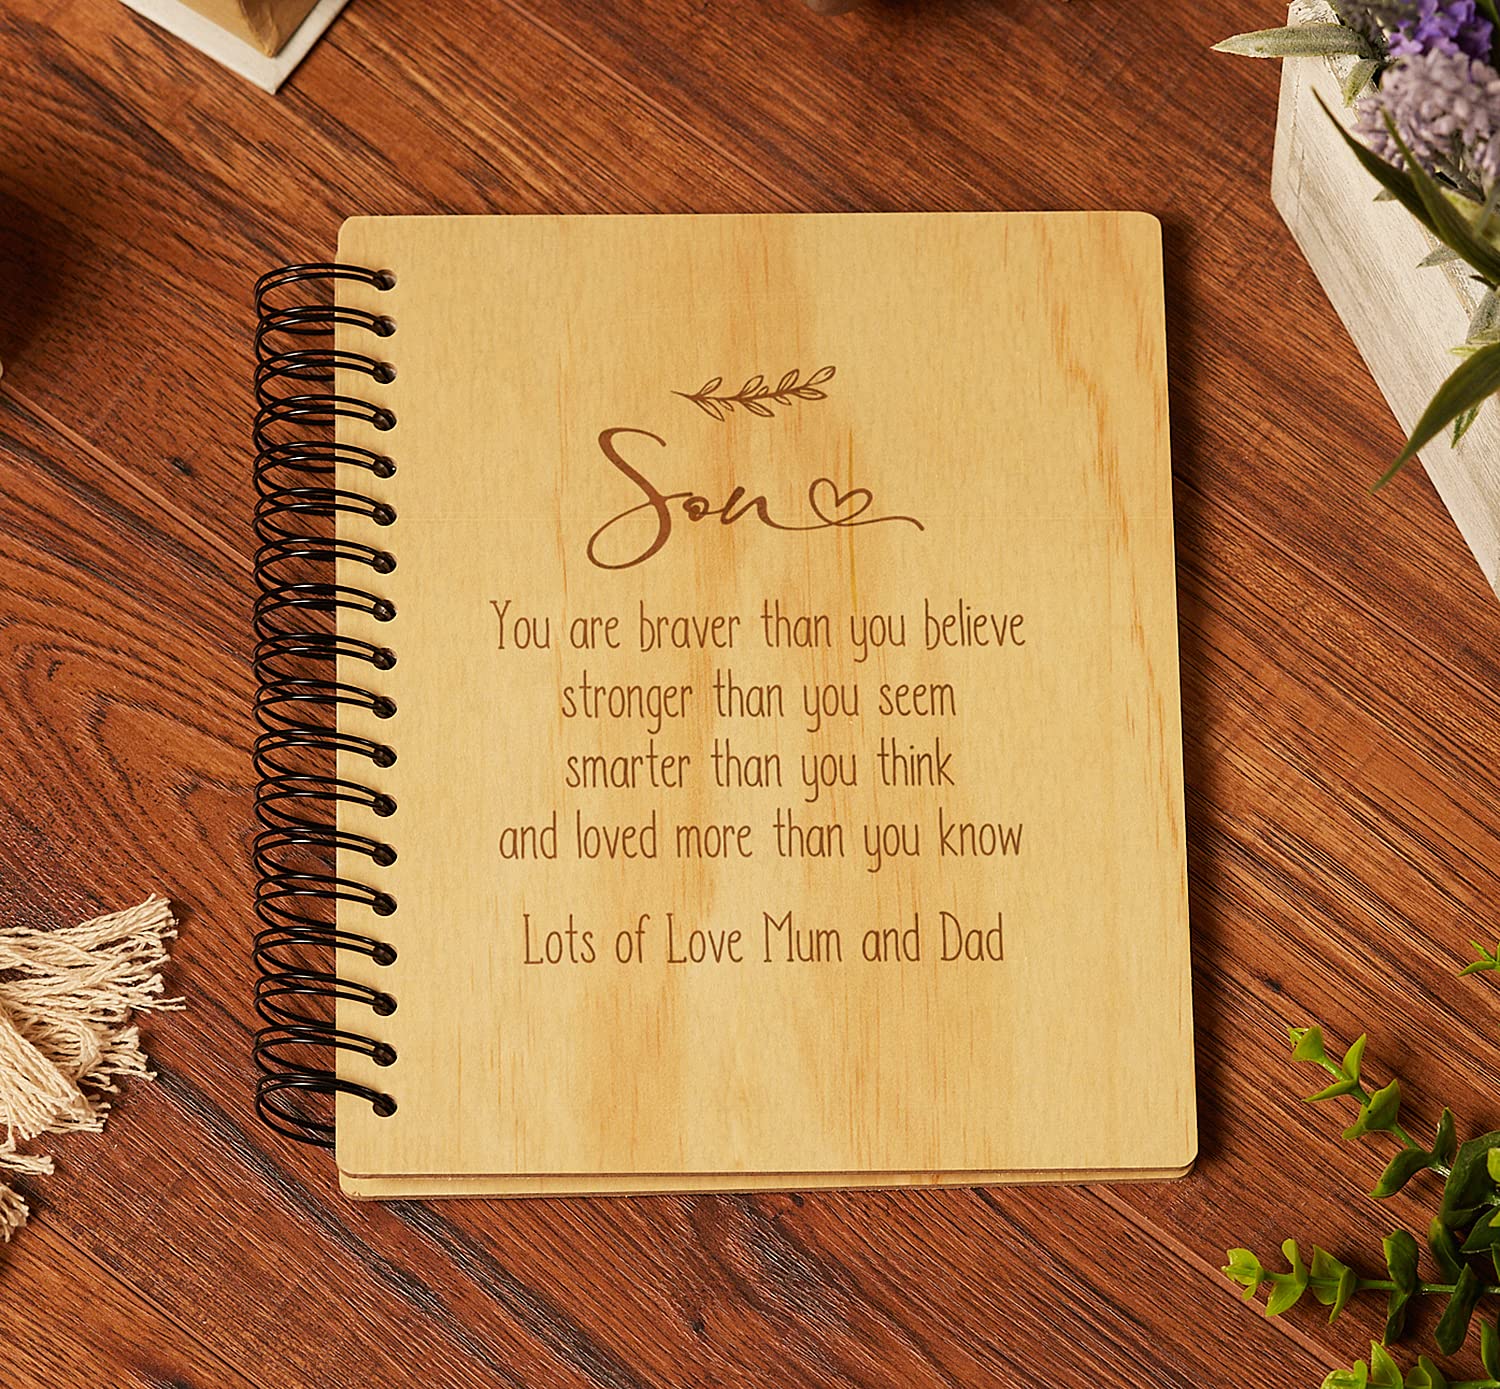 Son
You are braver than you believe
stronger than you seem
smarter than you think
and loved more than you know
Lots of Love Mum and Dad